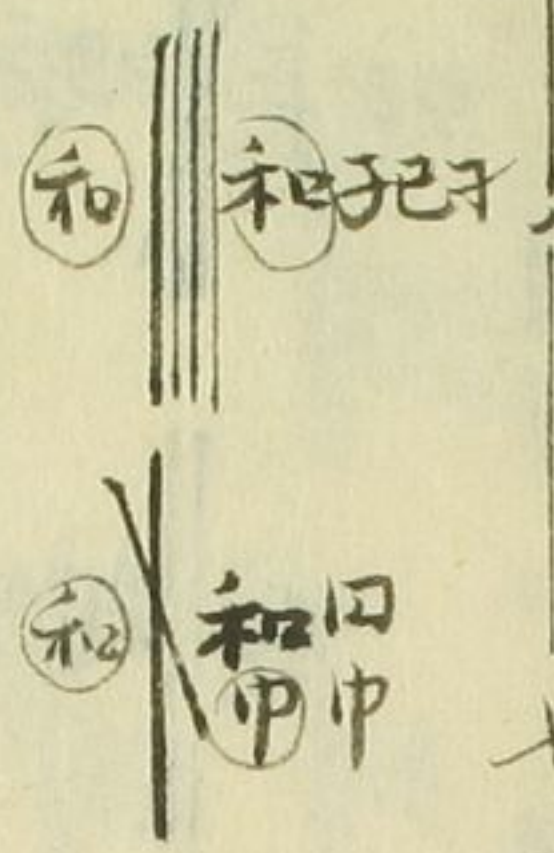 和 和子巳子
和 和日
巾 巾